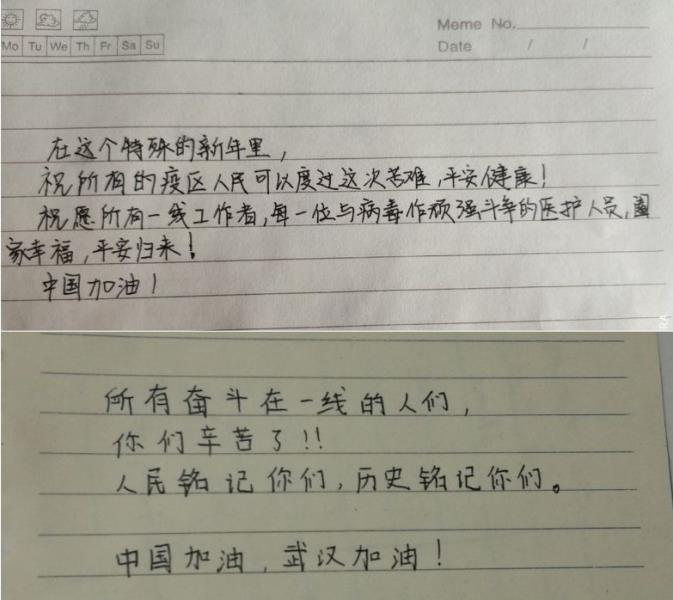 Meme No.
Mo Tu We Th Fr Sa Su
Date / /
在这个特殊的新年里，
祝所有的疫区人民可以度过这次苦难，平安健康！
祝愿所有一线工作者，每一位与病毒作顽强斗争的医护人员，阖
家幸福，平安归来！
中国加油！
所有奋斗在一线的人们，
你们辛苦了！！
人民铭记你们，历史铭记你们。
中国加油，武汉加油！